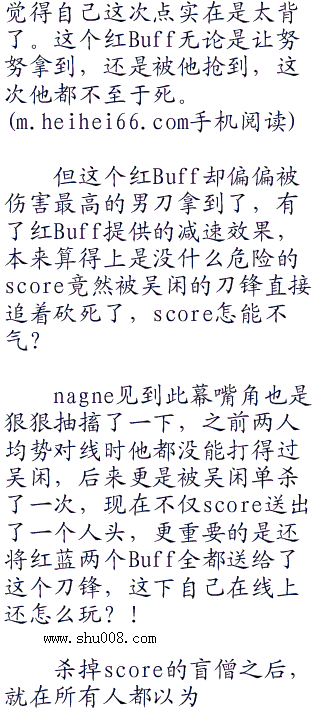 觉得自己这次点实在是太背
了。这个红Buff无论是让努
努拿到，还是被他抢到，这
次他都不至于死。
(m.heihei66.com手机阅读)
但这个红Buff却偏偏被
伤害最高的男刀拿到了，有
了红Buff提供的减速效果，
本来算得上是没什么危险的
score竟然被吴闲的刀锋直接
追着砍死了，score怎能不
气？
nagne见到此幕嘴角也是
狠狠抽搐了一下，之前两人
均势对线时他都没能打得过
吴闲，后来更是被吴闲单杀
了一次，现在不仅score送出
了一个人头，更重要的是还
将红蓝两个Buff全都送给了
这个刀锋，这下自己在线上
还怎么玩？！
www.shu008.com
杀掉score的盲僧之后，
就在所有人都以为